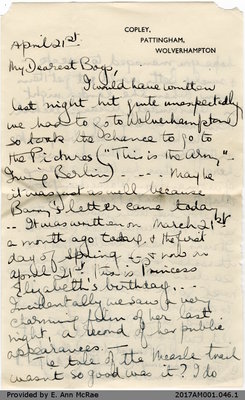 COPLEY,
PATTINGHAM,
WOLVERHAMPTON
April 21st
My Dearest Boys,
I would have written
last night but quite unexpectedly
we had to go to Wolverhampton
so took the chance to go to
the Pictures ("This is the Army" -
Irving Berlin) ---- Maybe
it was just as well because
Barry's letter came today
-- It was written on March 21st
a month ago today, & the first
day of Spring & now is
April 21st. This is Princess
Elizabeth's birthday. --
Incidentally we saw a very
charming film of her last
night, a record of her public
appearances. --
The tale of the Measle trail
wasn't so good was it? I do
Provided by E. Ann McRae
2017AM001.046.1